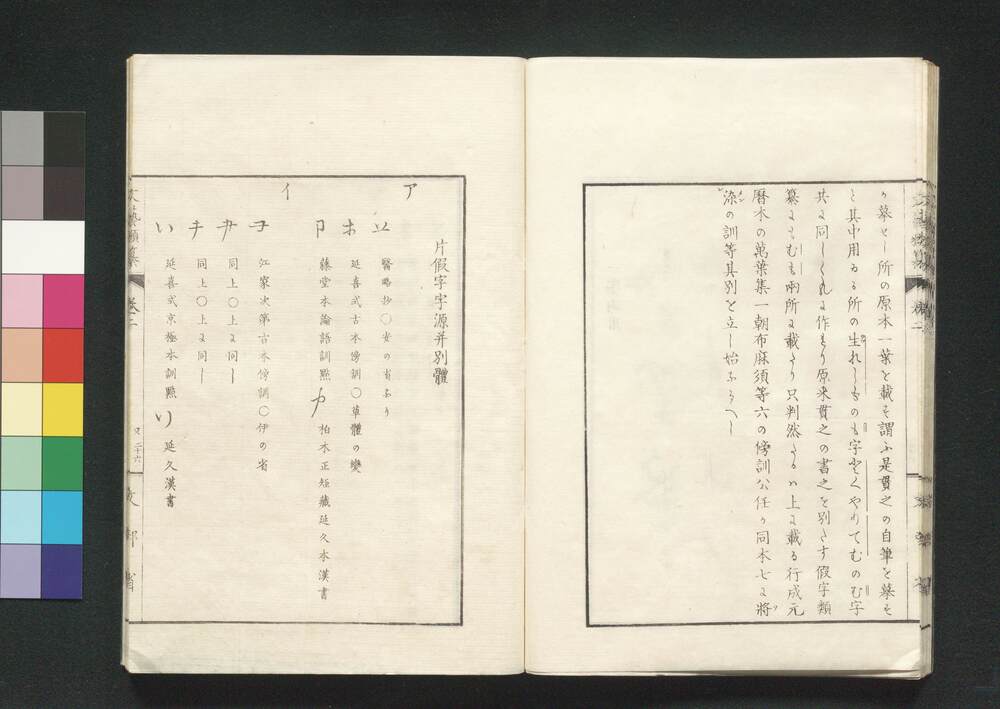 ゟ摹せし所の原本一葉を載す謂ふ是貫之の自筆を摹す
と其中用ゐる所の生れしものも字やめてむのむ字
共に同しくれに作もり原来貫之の書之を別たす假字類
纂にもむも両所に載たり只判然たるハ上に載る行成元
暦本の萬葉集一朝布麻須等六の傍訓公任か同本七に將
染の訓等其別を立し始ふるへし
片假字字源并別體
ア
醫略抄〇安の省なり
延喜式古本傍訓〇草體の變
藤堂本論語訓點 柏木正矩藏延久本漢書
イ
江家次第古本傍訓〇伊の省
同上〇上に同し
同上〇上に同し
い 延喜式京極本訓點 り 延久漢書
文藝類纂 卷二 又二十六 文部省